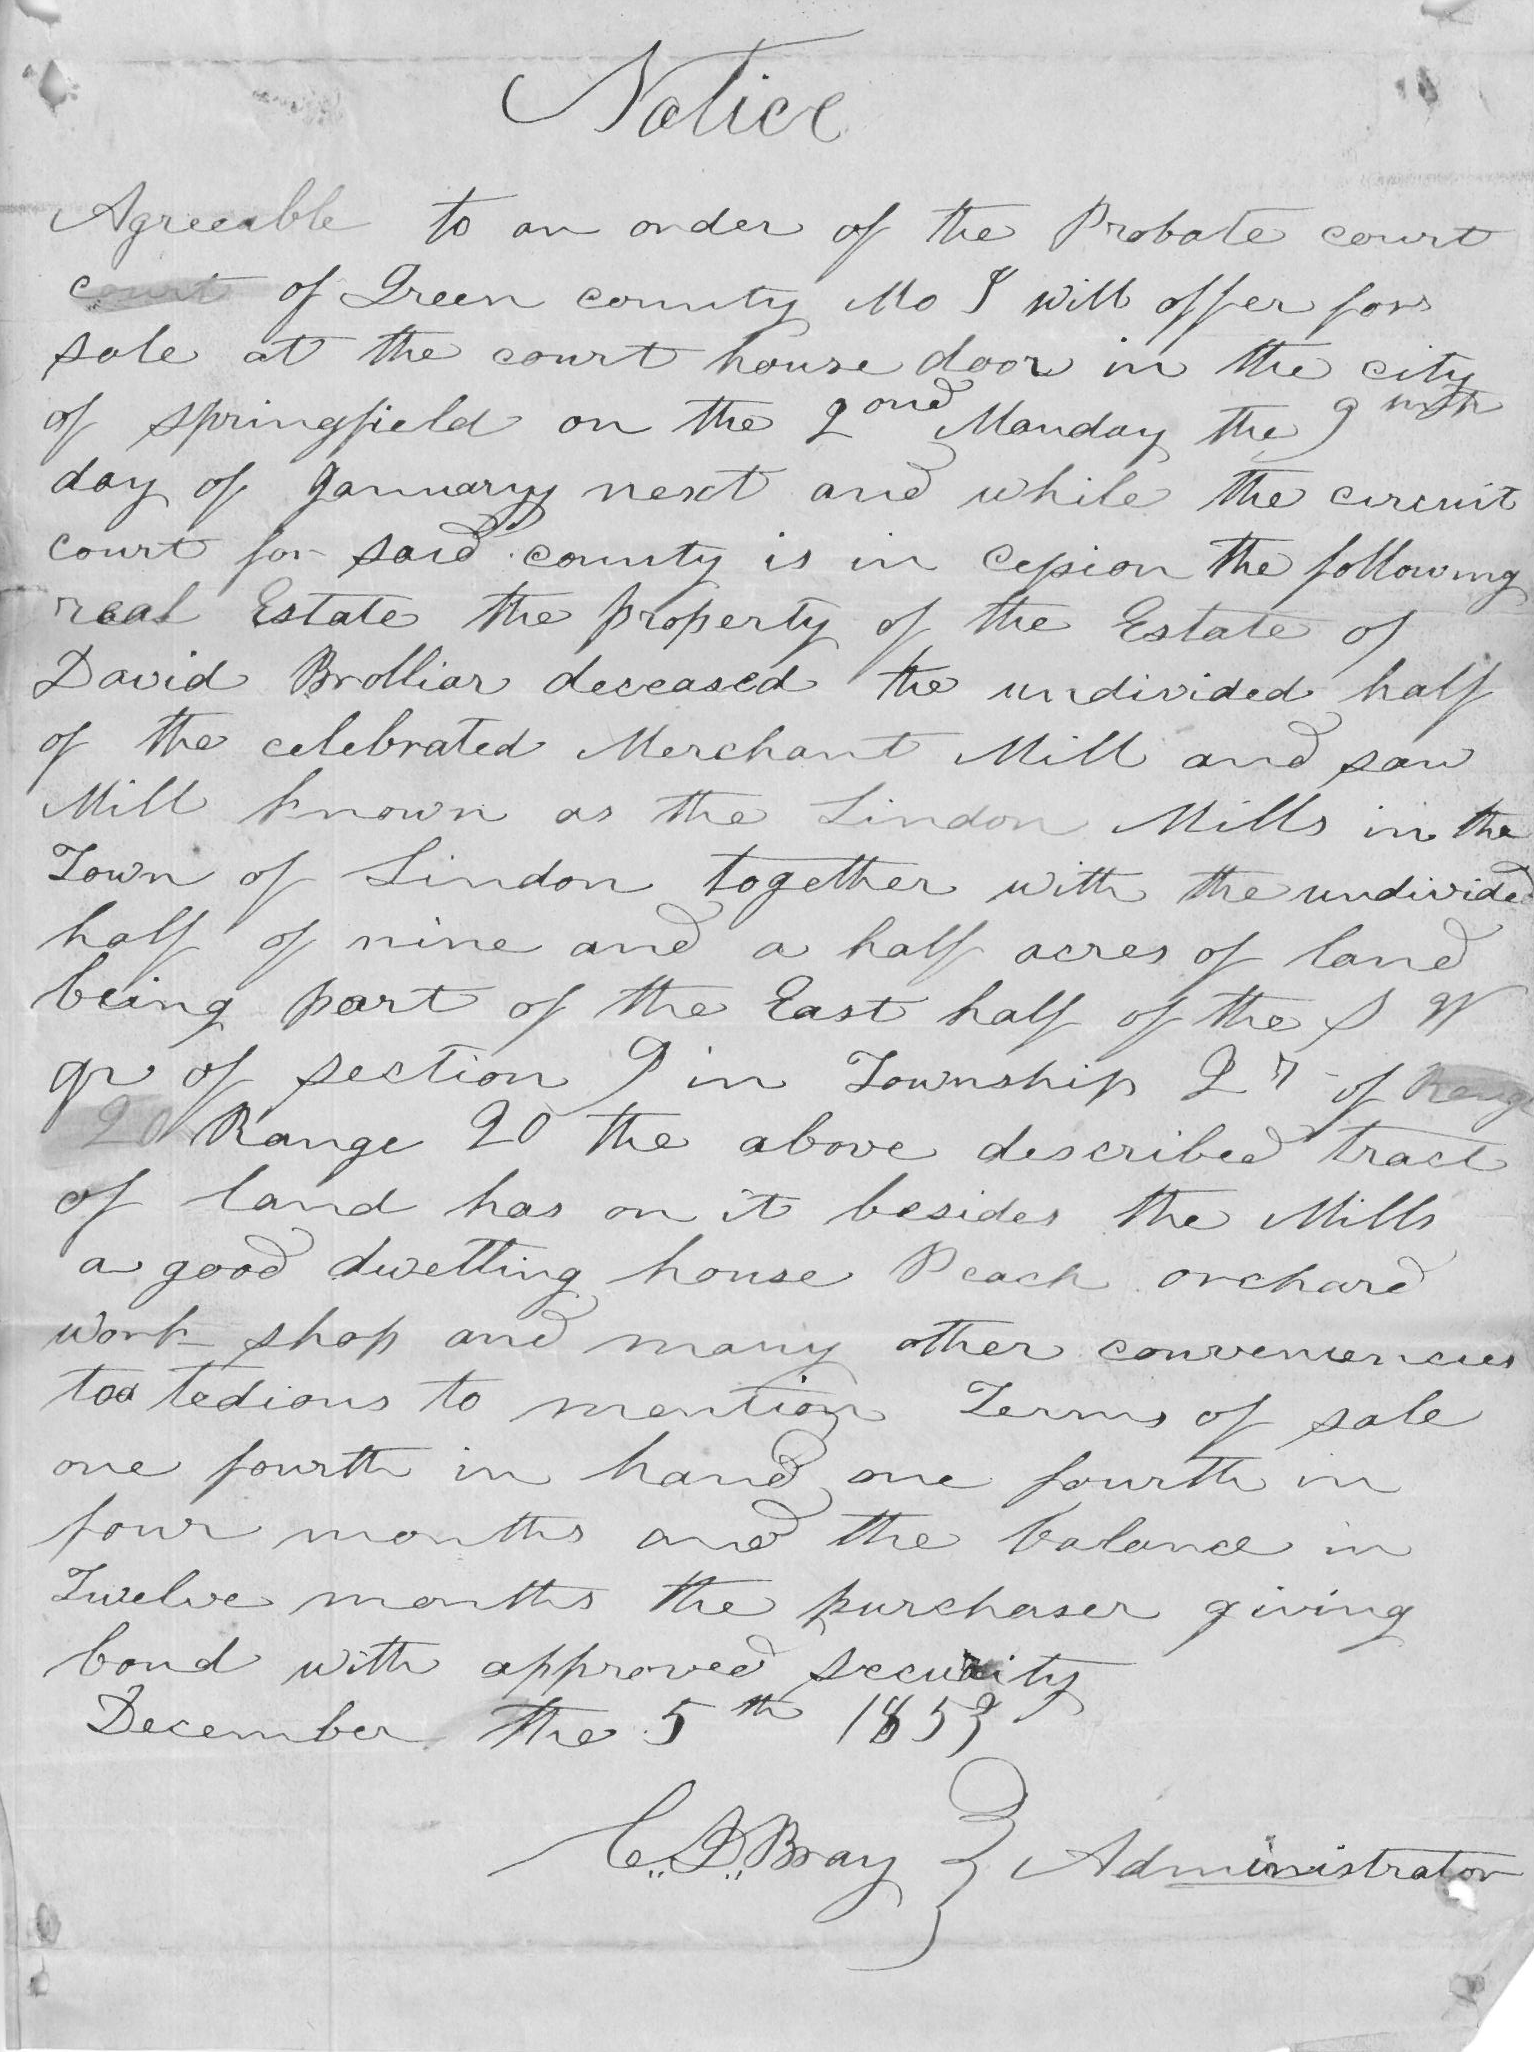 Notice
Agreeable to an order of the Probate court
court of Green county Mo I will offer for
sale at the court house door in the city
of springfield on the 2ond Monday the 9nth
day of January next and while the circuit
court for said county is in cession the following
real Estate the property of the Estate of
David Brolliar deceased the undivided half
of the celebrated Merchant Mill and saw
Mill known as the Lindon Mills in the
Town of Lindon together with the undivided
half of nine and a half acres of land
being part of the East half of the S W
qr of section 9 in Township 27 of Range
20 Range 20 the above described tract
of land has on it besides the Mills
a good dwelling house Peach orchard
work shop and many other conveniencies
too tedious to mention Terms of sale
one fourth in hand one fourth in
four months and the balance in
Twelve months the purchaser giving
bond with approved security
December the 5th 1853
C. D. Bray } Administrator